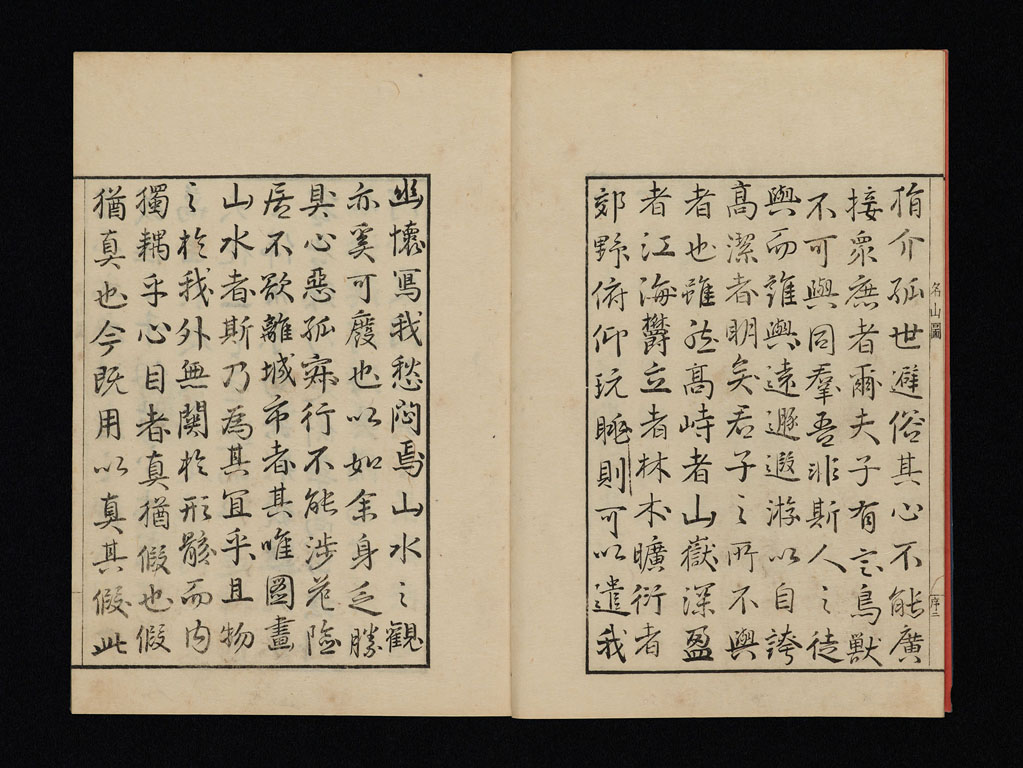 狷介孤世避俗其心不能廣
接衆庶者爾夫子有言鳥獸
不可與同羣吾非斯人之徒
與而誰與遠遯遐游以自誇
高潔者明矣君子之所不與
者也雖然高峙者山嶽深盈
者江海欝立者林木曠衍者
郊野俯仰玩眺則可以遣我
名山圖
序二
幽懷寫我愁悶焉山水之觀
亦奚可廢也以如余身乏勝
具心惡孤寂行不能涉危險
居不欲離城市者其唯圖畫
山水者斯乃為其宜乎且物
之於我外無關於形骸而内
獨耦乎心目者真猶假也假
猶真也今既用以真其假此